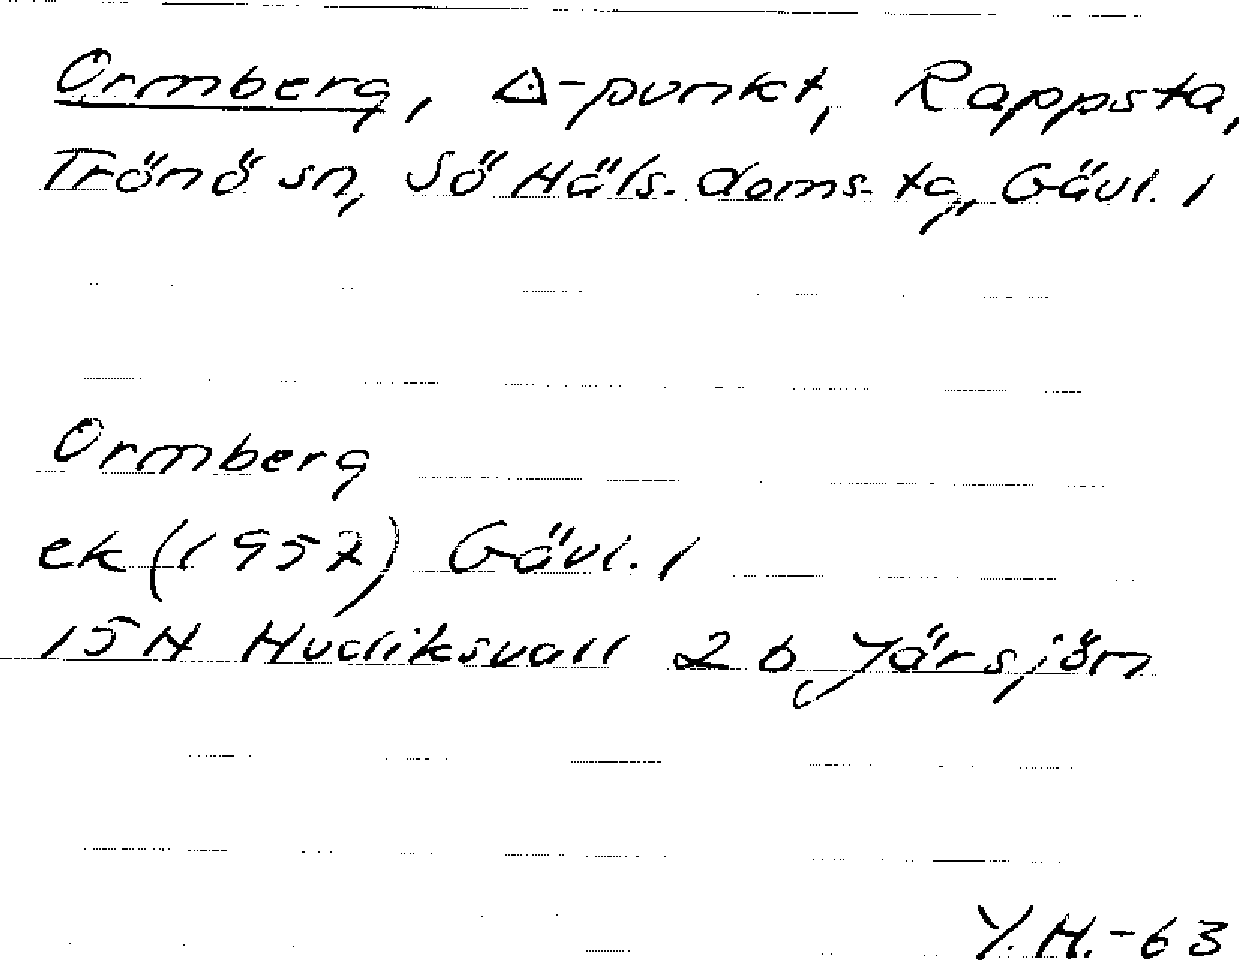 Ormberg, △-punkt, Rappsta,
Trönö sn, Sö Häls. doms. tg, Gävl. l
Ormberg
ek (1957) Gävl. l
15H Hudiksvall 2 b Yärsjön
Y.H.-63